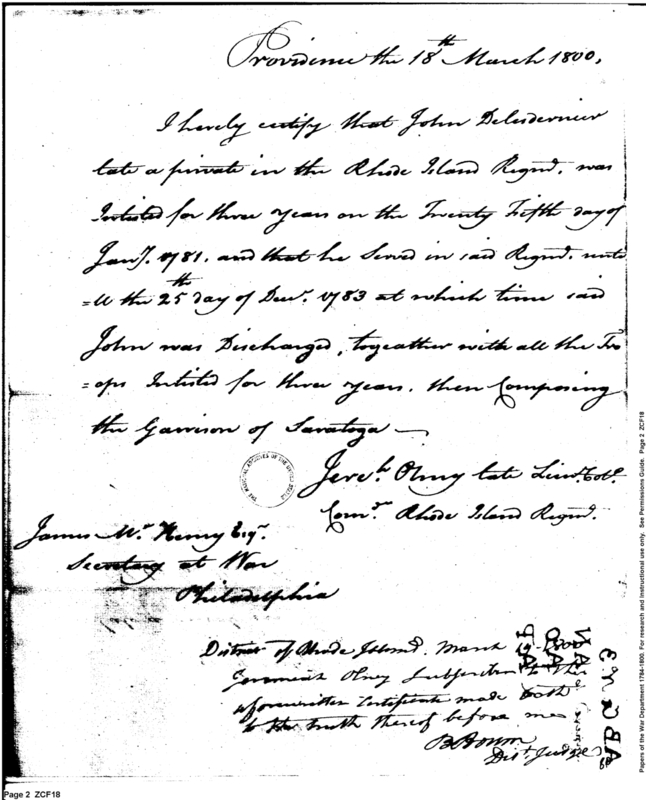 Providence the 18th March 1800.
I hereby certify that John Delesdernier
late a private in the Rhode Island Regmt. was
Inlisted for three years on the Twenty Fifth day of
Jany. 1781. and that he Served in said Regmt. unti
=ll the 25th day of Decr. 1783 at which time said
John was Discharged, togeather with all the Tro
=ops Inlisted for three years. then Composing
the Garrison of Saratoga
Jereh. Olney late Lieut. Colo.
Comt. Rhode Island Regmt.
THE NATIONAL ARCHIVES OF THE UNITED STATES
James Mc. Henry Esqr.
Secretary at War
Philadelphia
District of Rhode Island. March 1800
Jeremiah Olney Subscriber to the
aforewritten Certificate made Oath
to the truth thereof before me
B Bourn
Dist. Judge
Page 2 ZCF18
Papers of the War Department 1784-1800. For research and instructional use only. See Permissions Guide. Page 2 ZCF18